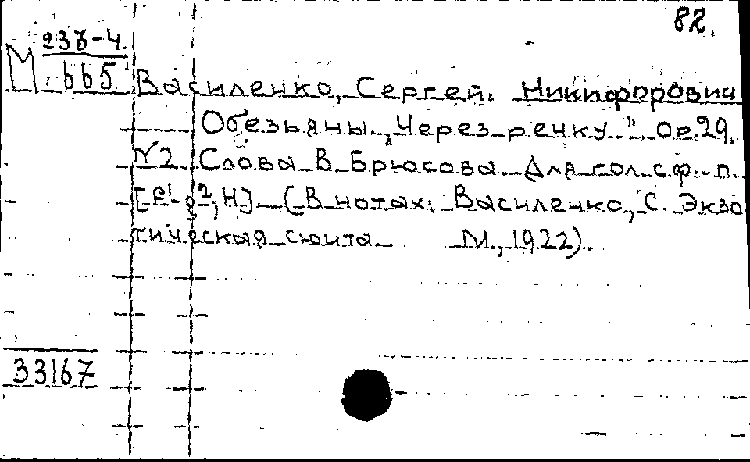 82.
М 237-4.
665
Василенко, Сергей Никифорович
Обезьяны „Через речку". Ор. 29.
№2 Слова В. Брюсова. Для гол. с ф.-п.
[e¹-g², H] (В нотах: Василенко, С. Экзо
тическая сюита М., 1922).
33167